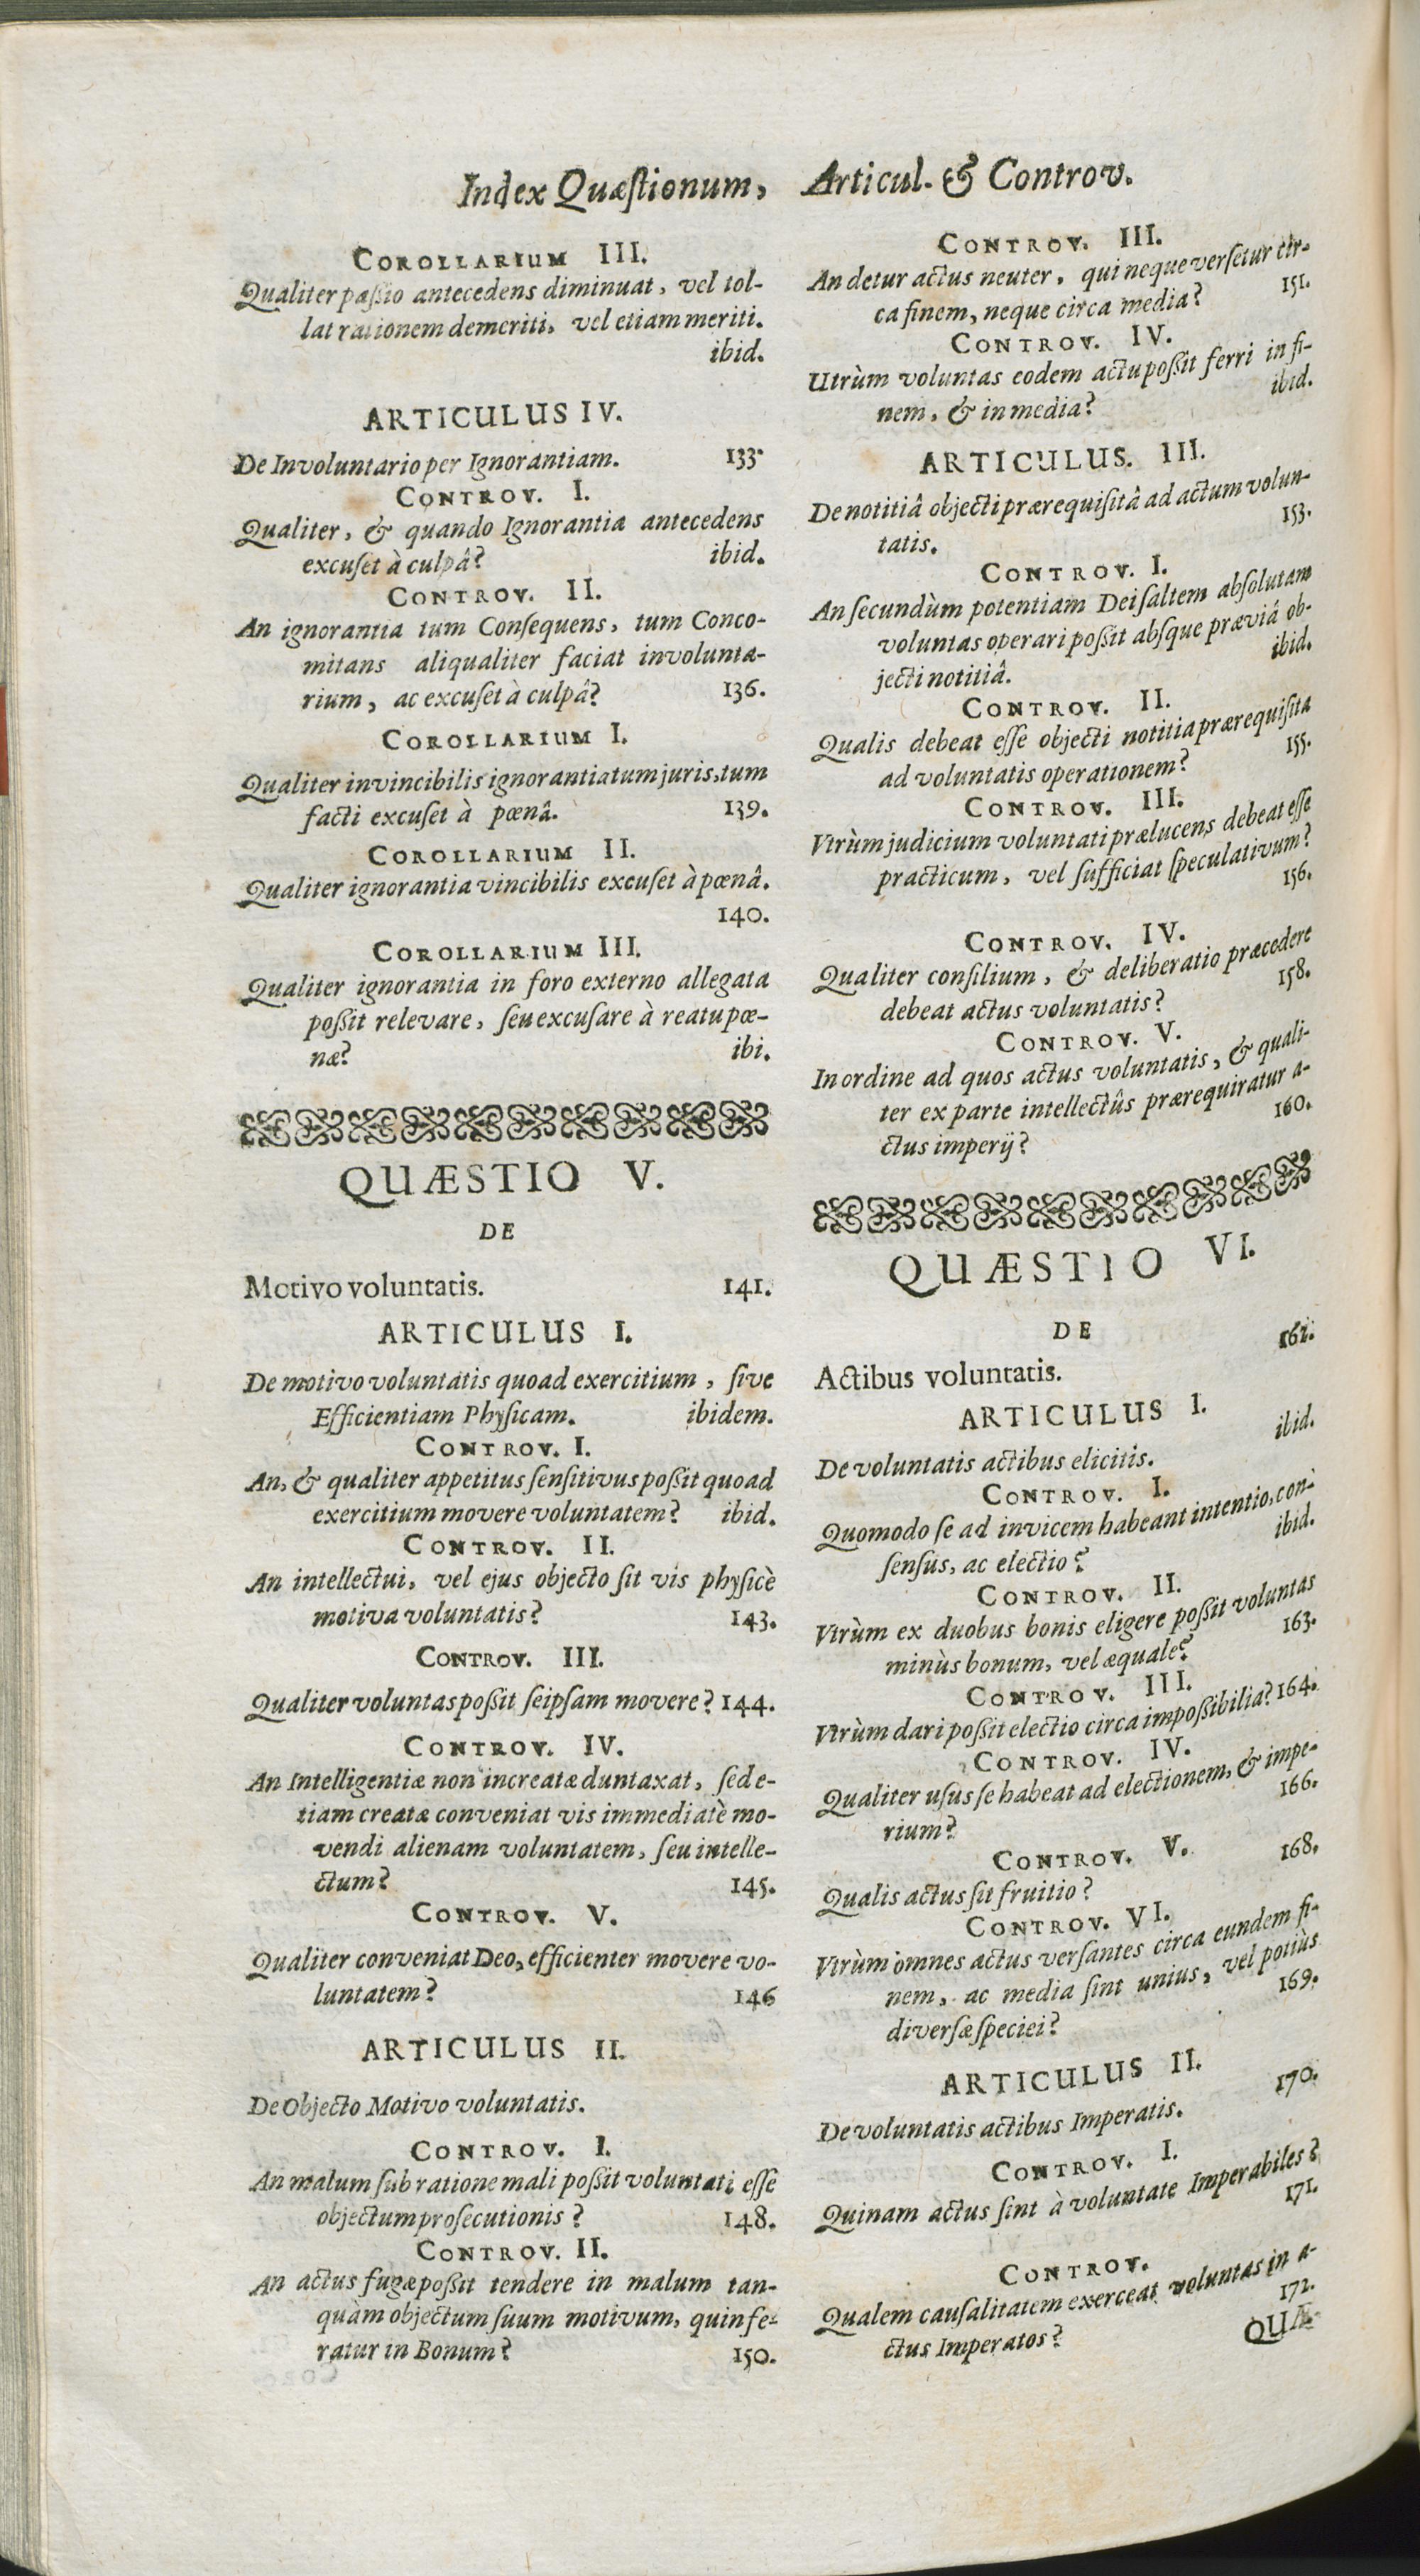 Index Quæſtionum, Articul. & Controv.
COROLLARIUM III.
Qualiter paſsio antecedens diminuat, vel tol-
lat rationem demeriti, vel etiam meriti.
ibid.
ARTICULUS IV.
De Involuntario per Ignorantiam. 133.
CONTROV. I.
Qualiter, & quando Ignorantia antecedens
excuſet à culpâ? ibid.
CONTROV. II.
An ignorantia tum Conſequens, tum Conco-
mitans aliqualiter faciat involunta-
rium, ac excuſet à culpâ? 136.
COROLLARIUM I.
Qualiter invincibilis ignorantia tum juris, tum
facti excuſet à pœnâ. 139.
COROLLARIUM II.
Qualiter ignorantia vincibilis excuſet à pœnâ.
140.
COROLLARIUM III.
Qualiter ignorantia in foro externo allegata
poſsit relevare, ſeu excuſare à reatu pœ-
næ? ibi.
QUÆSTIO V.
DE
Motivo voluntatis. 141.
ARTICULUS I.
De motivo voluntatis quoad exercitium, ſive
Efficientiam Phyſicam. ibidem.
CONTROV. I.
An, & qualiter appetitus ſenſitivus poſsit quoad
exercitium movere voluntatem? ibid.
CONTROV. II.
An intellectui, vel ejus objecto ſit vis phyſicè
motiva voluntatis? 143.
CONTROV. III.
Qualiter voluntas poſsit ſeipſam movere? 144.
CONTROV. IV.
An Intelligentiæ non increatæ duntaxat, ſed e-
tiam creatæ conveniat vis immediatè mo-
vendi alienam voluntatem, ſeu intelle-
ctum? 145.
CONTROV. V.
Qualiter conveniat Deo, efficienter movere vo-
luntatem? 146
ARTICULUS II.
De Objecto Motivo voluntatis.
CONTROV. I.
An malum ſub ratione mali poſsit voluntati eſſe
objectum proſecutionis? 148.
CONTROV. II.
An actus fugæ poſsit tendere in malum tan-
quàm objectum ſuum motivum, quin fe-
ratur in Bonum? 150.
CONTROV. III.
An detur actus neuter, qui neque verſetur cir-
ca finem, neque circa media? 151.
CONTROV. IV.
Utrùm voluntas eodem actu poſsit ferri in fi-
nem, & in media? ibid.
ARTICULUS. III.
De notitiâ objecti prærequiſitâ ad actum volun-
tatis. 153.
CONTROV. I.
An ſecundùm potentiam Dei ſaltem abſolutam
voluntas operari poſsit abſque præviâ ob-
jecti notitiâ. ibid.
CONTROV. II.
Qualis debeat eſſe objecti notitia prærequiſita
ad voluntatis operationem? 155.
CONTROV. III.
Vtrùm judicium voluntati prælucens debeat eſſe
practicum, vel ſufficiat ſpeculativum?
156.
CONTROV. IV.
Qualiter conſilium, & deliberatio præcedere
debeat actus voluntatis? 158.
CONTROV. V.
In ordine ad quos actus voluntatis, & quali-
ter ex parte intellectûs prærequiratur a-
ctus imperij? 160.
QUÆSTIO VI.
DE
Actibus voluntatis. 161.
ARTICULUS I.
De voluntatis actibus elicitis. ibid.
CONTROV. I.
Quomodo ſe ad invicem habeant intentio, con-
ſenſus, ac electio? ibid.
CONTROV. II.
Vtrùm ex duobus bonis eligere poſsit voluntas
minùs bonum, vel æquale? 163.
CONTROV. III.
Vtrùm dari poſsit electio circa impoſsibilia? 164.
CONTROV. IV.
Qualiter uſus ſe habeat ad electionem, & impe-
rium? 166.
CONTROV. V.
Qualis actus ſit fruitio? 168.
CONTROV. VI.
Vtrùm omnes actus verſantes circa eundem fi-
nem, ac media ſint unius, vel potiùs
diverſæ ſpeciei? 169.
ARTICULUS II.
De voluntatis actibus Imperatis. 170.
CONTROV. I.
Quinam actus ſint à voluntate Imperabiles?
171.
CONTROV.
Qualem cauſalitatem exerceat voluntas in a-
ctus Imperatos? 172.
QUÆ-